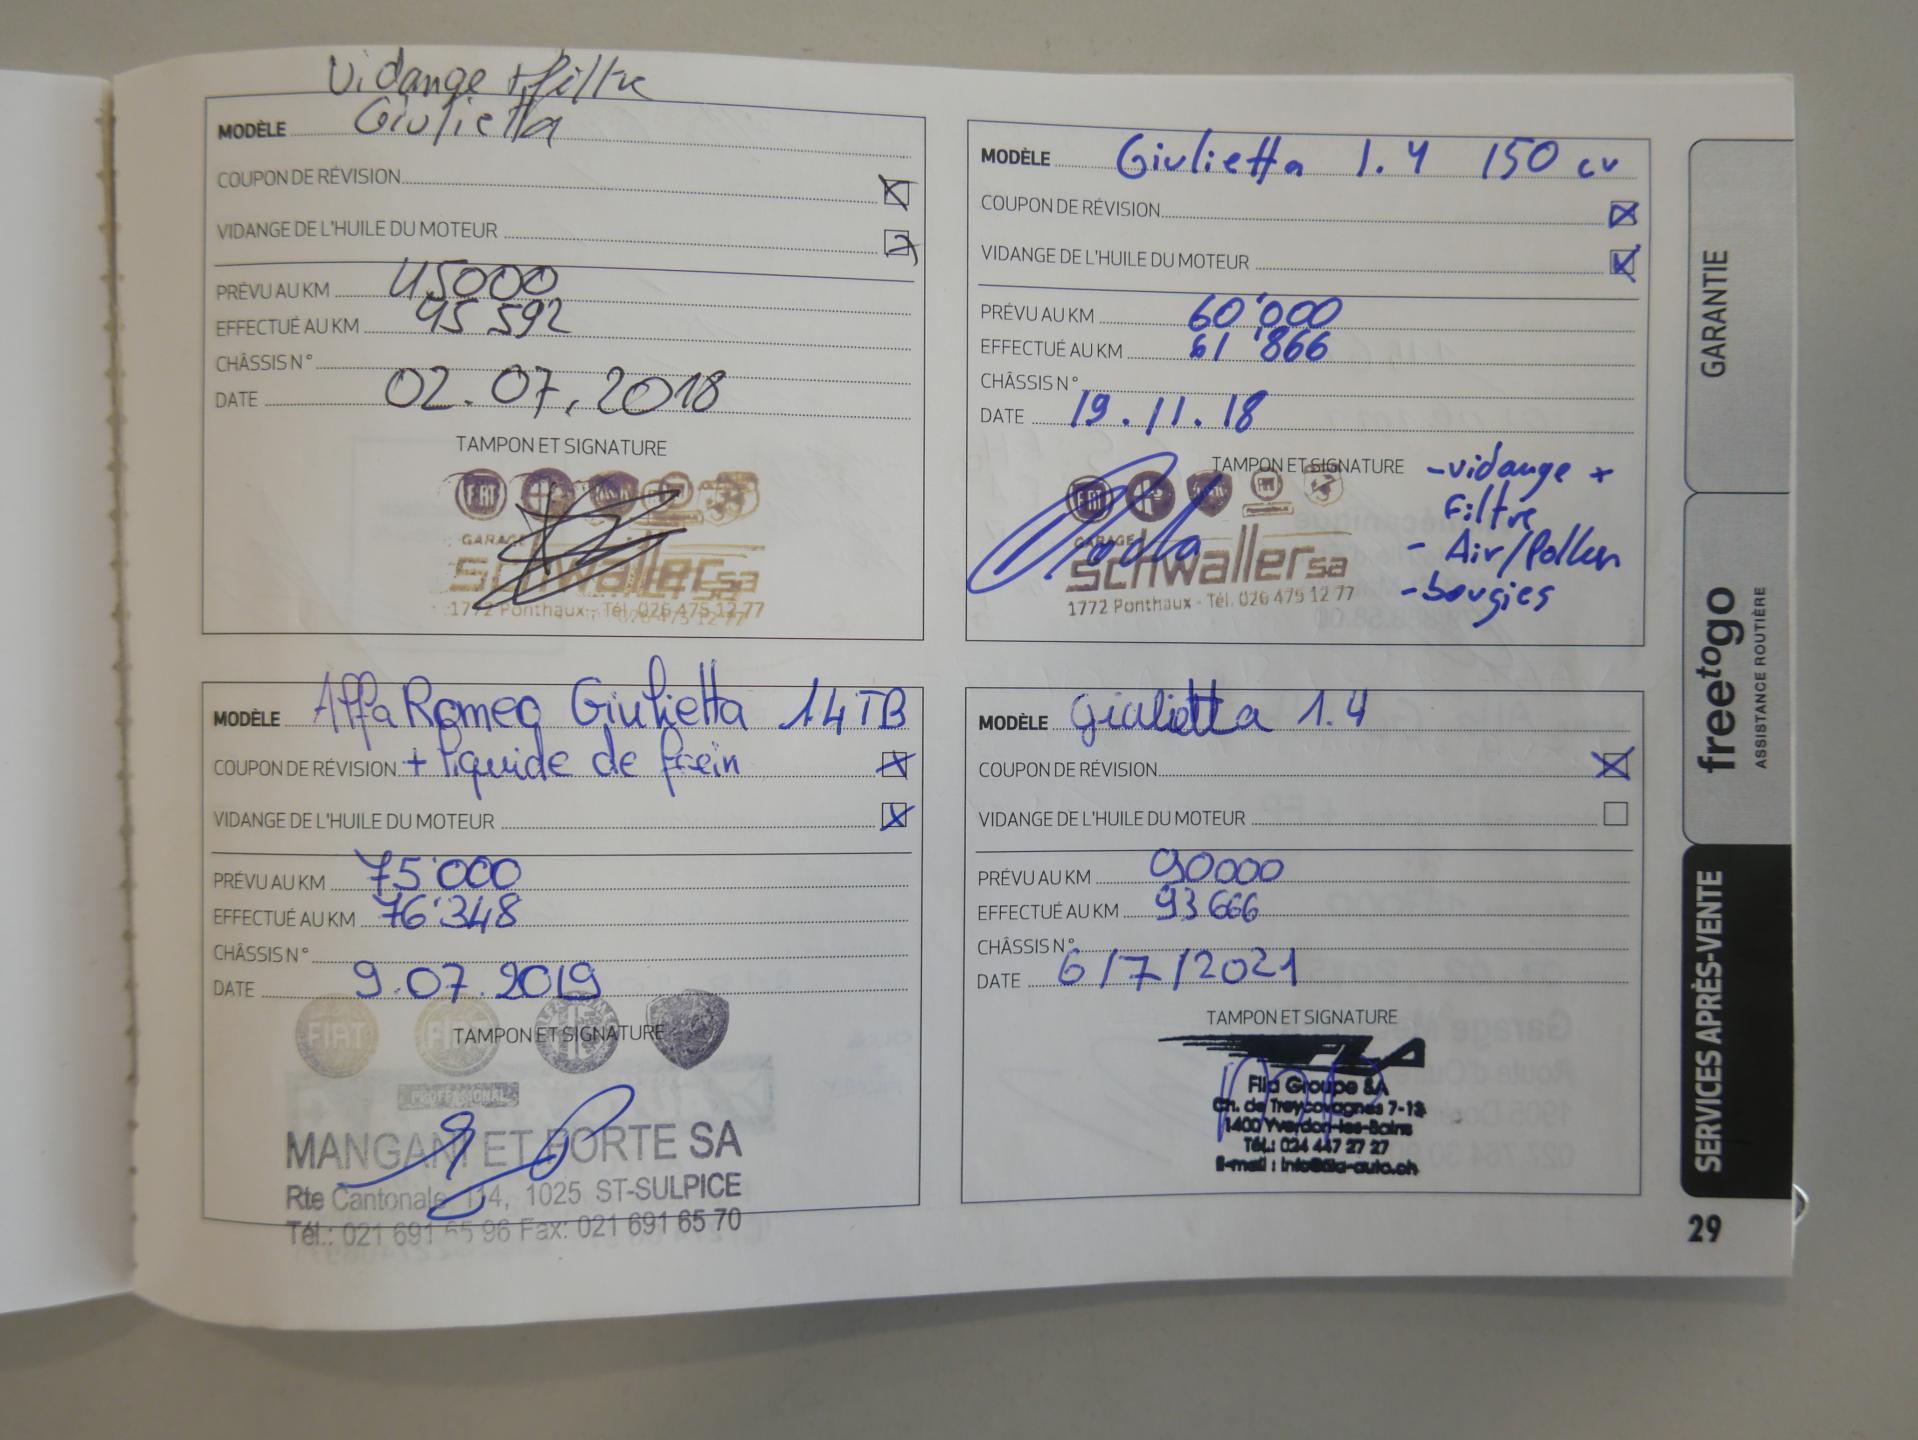 Vidange + filtre
MODÈLE Giulietta
COUPON DE RÉVISION
VIDANGE DE L'HUILE DU MOTEUR
PRÉVU AU KM 45000
EFFECTUÉ AU KM 45 592
CHÂSSIS N°
DATE 02.07.2018
TAMPON ET SIGNATURE
FIAT
GARAGE
schwaller sa
1772 Ponthaux - Tél. 026 475 12 77
MODÈLE Giulietta 1.4 150 cv
COUPON DE RÉVISION
VIDANGE DE L'HUILE DU MOTEUR
PRÉVU AU KM 60'000
EFFECTUÉ AU KM 61'866
CHÂSSIS N°
DATE 19.11.18
TAMPON ET SIGNATURE
- vidange +
Filtre
- Air/Pollen
- bougies
FIAT
GARAGE
schwaller sa
1772 Ponthaux - Tél. 026 475 12 77
MODÈLE Alfa Romeo Giulietta 1.4 TB
COUPON DE RÉVISION + liquide de frein
VIDANGE DE L'HUILE DU MOTEUR
PRÉVU AU KM 75'000
EFFECTUÉ AU KM 76'348
CHÂSSIS N°
DATE 9.07.2019
TAMPON ET SIGNATURE
FIAT
PROFESSIONAL
MANGANI ET PORTE SA
Rte Cantonale 114, 1025 ST-SULPICE
Tél.: 021 691 65 96 Fax: 021 691 65 70
MODÈLE Giulietta 1.4
COUPON DE RÉVISION
VIDANGE DE L'HUILE DU MOTEUR
PRÉVU AU KM 90000
EFFECTUÉ AU KM 93666
CHÂSSIS N°
DATE 6/7/2021
TAMPON ET SIGNATURE
Fila Groupe SA
Ch. de Treycovagnes 7-13
1400 Yverdon-les-Bains
Tél.: 024 447 27 27
E-mail : info@fila-auto.ch
GARANTIE
freetogo
ASSISTANCE ROUTIÈRE
SERVICES APRÈS-VENTE
29